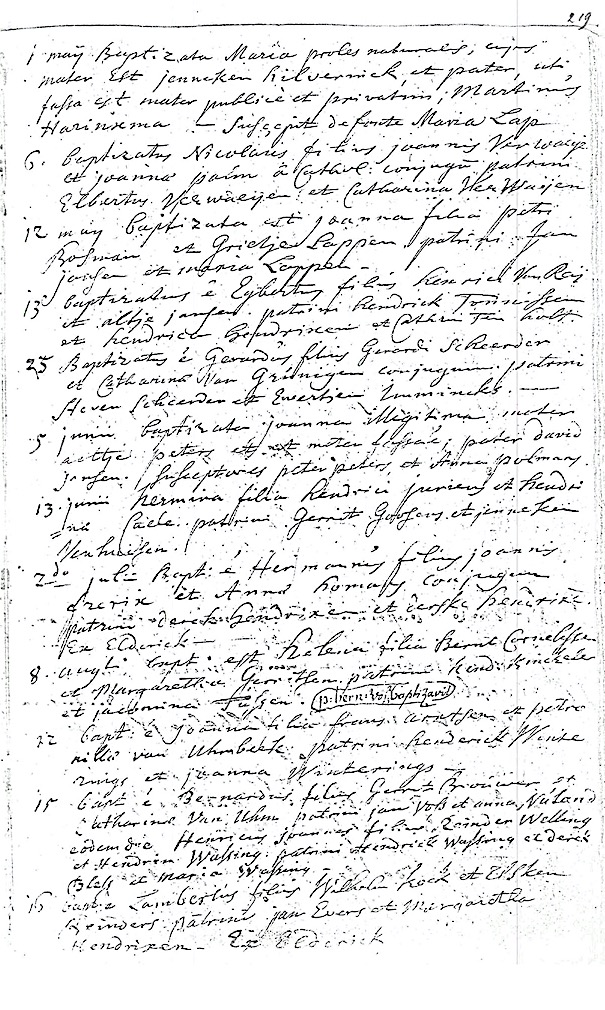 219.
1 maij Baptizata Maria proles naturalis, cujus
mater Est jenneken hilvernick, et pater, uti
fassa est mater publicè et privatim, Martinus
Harinxma — Suscepit de fonte Maria Lap
6. baptizatus Nicolaus filius joannis Verwaeije
et joanna palm a Cathol: conjugum patrini
Elbertus Verwaeijen et Catharina Verwaijen
12 maij baptizata est joanna filia petri
Bosman et Grietje Lappen patrini Jan
jansen et maria Lappen —
13 baptizatus è Egbertus filius henrici Van Raij
et altje jansen. patrini hendrick Tonnissen
et hendrica hendrixen et Cathrin Ten holt
25 Baptizatus è Gerardus filius Gerardi Scheerder
et Catharina Van Gruningen conjugum. patrini
Steven Scheerder et Evertjen Immincks —
5 junii baptizata joanna illegitima mater
aeltje peters et mater fassa è, pater david
jansen. susceptores peter peters, et Anna polmans.
13. junii hermina filia hendrici juriens et hendri
=na Caele. patrini Gerrit Goosens et jenneken
Venhuisen.
2do julii Bapt: è Hermannus filius joannis
frerix et Anna homans conjugum
patrini derck hendrixen et derske hendrixe.
Ex Elderick —
8. augti bapt: est helena filia Bernt Cornelissen
et Margaretha Gerritsen patrini hend: kinckele
et jacomina Tijssen. p: bern: vos baptizavit
12 bapt: è joanna filia frans arntsen et petro
nilla van Uhmbeeck patrini henderick Winte
rings et joanna Winterings —
15 bapt è Bernardus filius Gerrit Brouwer et
Catharina Van Uhm patrini jan Vos et anna Nuland
eodem die Henricus joannes filius Reinder Welling
et Hendrin Wassing. patrini Hendrick Wassing et derck
Bless et maria Wassing —
16 bapt è Lambertus filius Wilhelm kock et Elsken
Reinders patrini jan Evers et Margaretha
Hendrixen — Ex Elderick